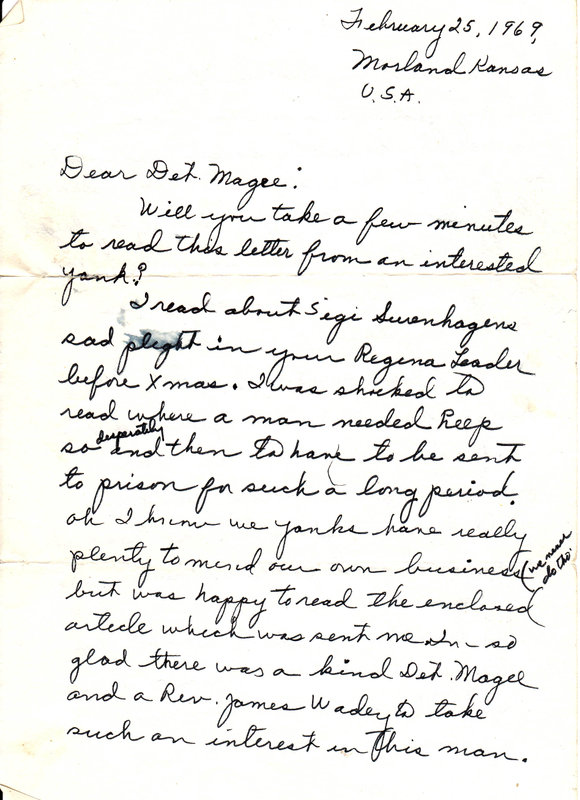 February 25, 1969,
Morland Kansas
U.S.A.
Dear Det. Magee:
Will you take a few minutes
to read this letter from an interested
yank?
I read about Sigi Surenhagens
sad plight in your Regina Leader
before Xmas. I was shocked to
read where a man needed help
so desperately and then to have to be sent
to prison for such a long period.
oh I know we yanks have really
plenty to mend our own business (we never do tho.)
but was happy to read the enclosed
article which was sent me In - so
glad there was a kind Det. Magee
and a Rev. James Wadey to take
such an interest in this man.